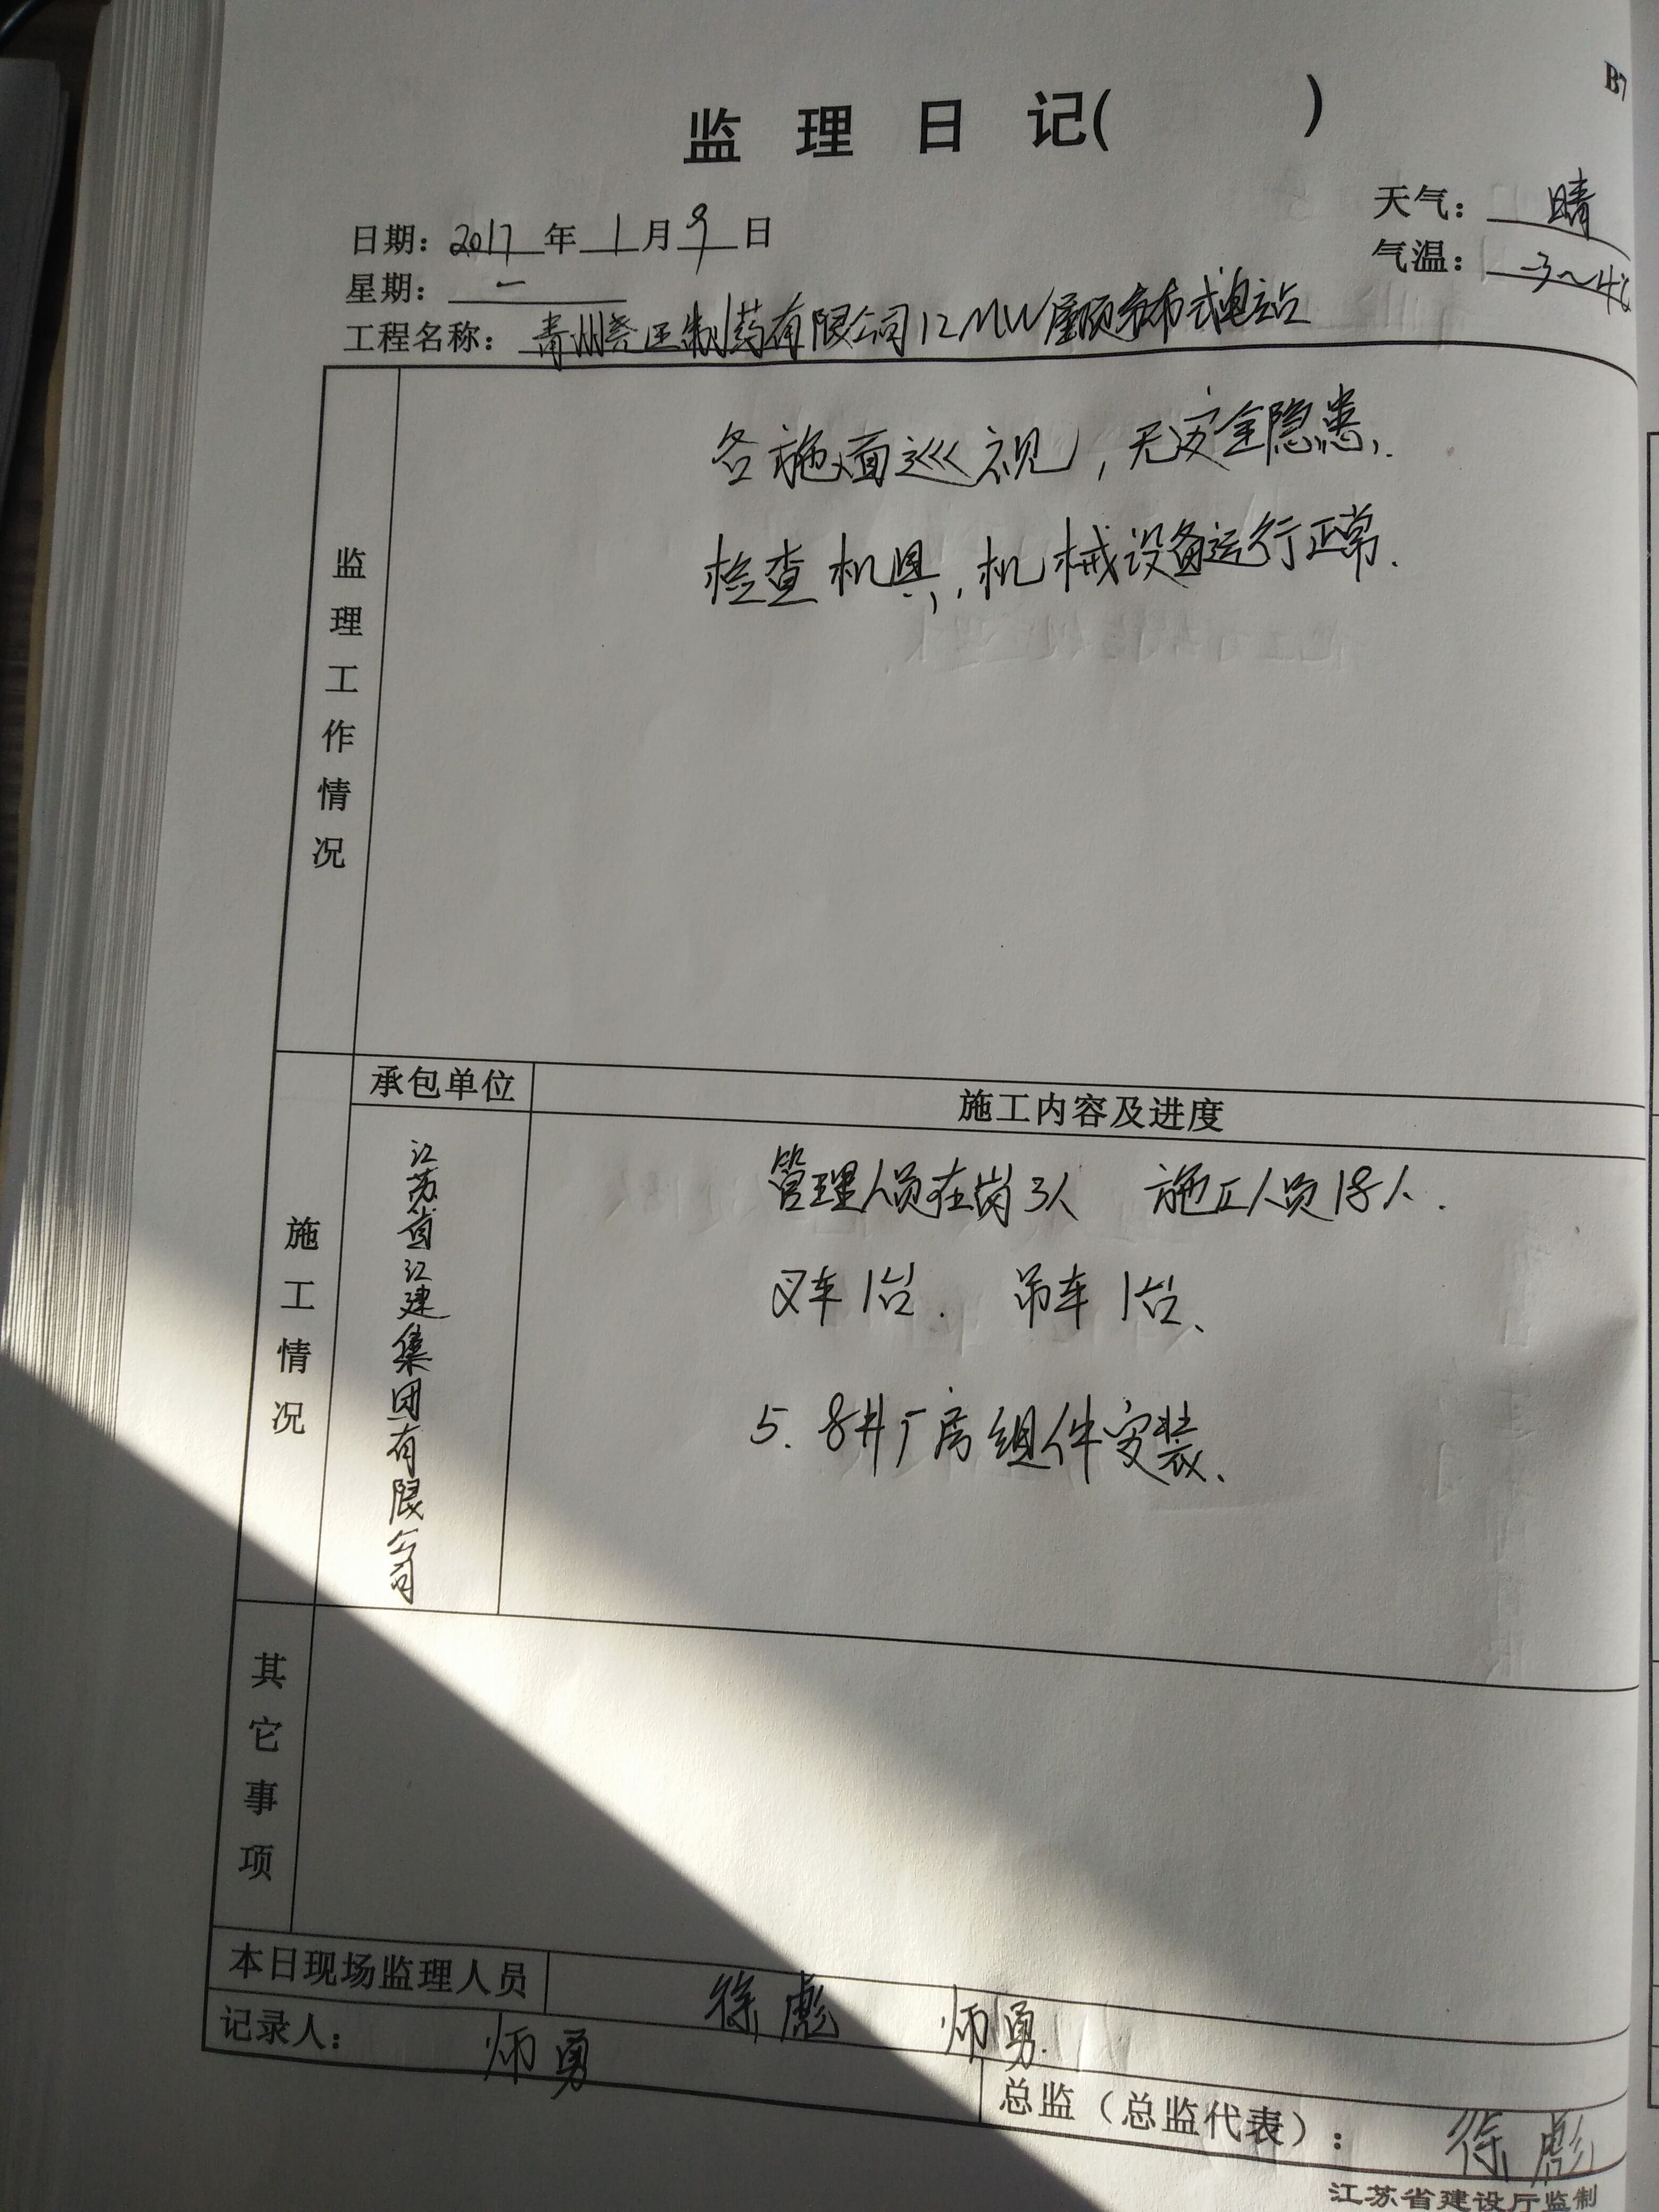 B7
监 理 日 记( )
日期: 2017 年 1 月 9 日
天气: 晴
星期: 一
气温: -3~4℃
工程名称: 青州尧王制药有限公司12MW屋顶分布式电站
监理工作情况
各施工面巡视,无安全隐患.
检查机具,机械设备运行正常.
施工情况
承包单位
施工内容及进度
江苏省江建集团有限公司
管理人员在岗3人 施工人员18人.
叉车1台. 吊车1台、
5. 8#厂房组件安装、
其它事项
本日现场监理人员
徐彪 师勇
记录人: 师勇
总监(总监代表): 徐彪
江苏省建设厅监制